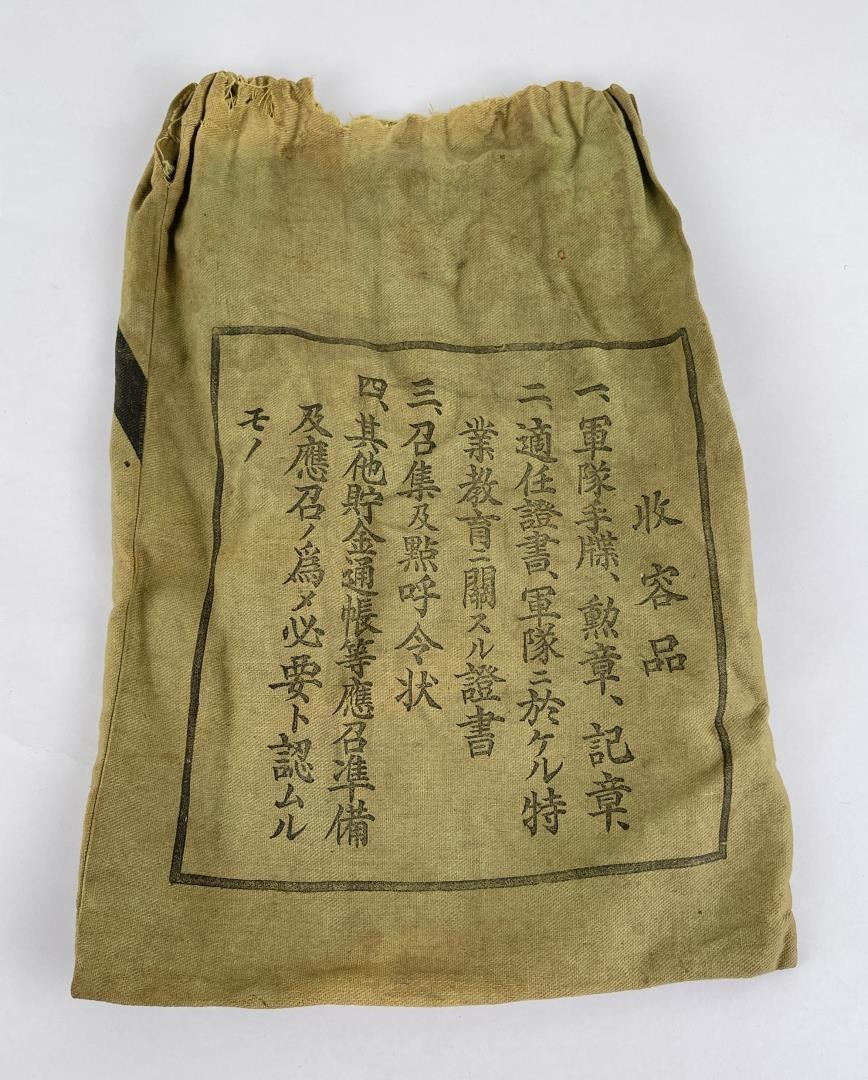 收容品
一、軍隊手牒、勲章、記章、
二、適任證書、軍隊ニ於ケル特
業教育ニ關スル證書
三、召集及點呼令状
四、其他貯金通帳等應召準備
及應召ノ爲メ必要ト認ムル
モノ